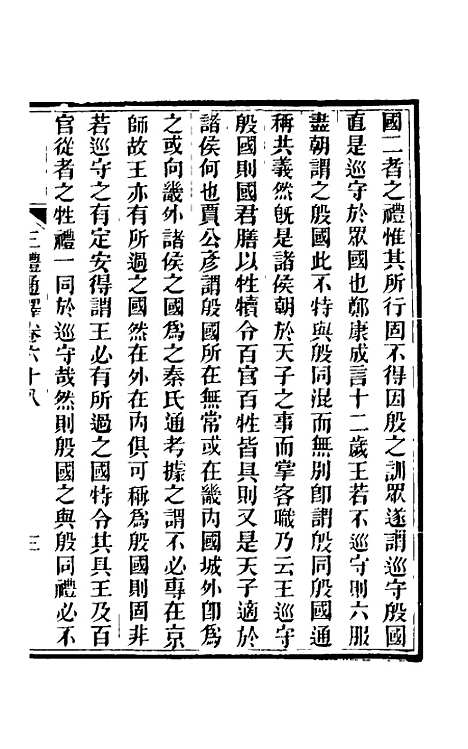 國二者之禮惟其所行固不得因殷之訓眾遂謂巡守殷國
直是巡守於眾國也鄭康成言十二歲王若不巡守則六服
盡朝謂之殷國此不特與殷同混而無別卽謂殷同殷國通
稱其義然旣是諸侯朝於天子之事而掌客職乃云王巡守
殷國則國君膳以牲犢令百官百牲皆具則又是天子適於
諸侯何也賈公彥謂殷國所在無常或在畿內國城外卽爲
之或向畿外諸侯之國爲之秦氏通考據之謂不必專在京
師故王亦有所過之國然在外在內俱可稱爲殷國則固非
若巡守之有定安得謂王必有所過之國特令其具王及百
官從者之牲禮一同於巡守哉然則殷國之與殷同禮必不
三禮通釋卷六十八 三